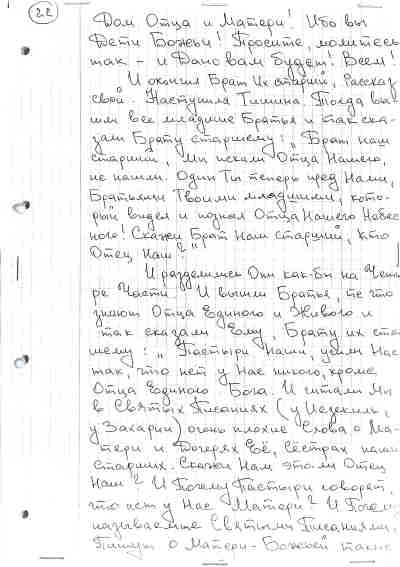 22
Дом Отца и Матери! Ибо вы
Дети Божьи! Просите, молитесь
так – и Дано вам будет! Всем!
И окончил Брат их старший, рассказ
свой. Наступила Тишина. Тогда выш
ли все младшие Братья и так ска-
зали Брату старшему: „Брат наш
старший, Мы искали Отца Нашего,
не нашли. Один Ты теперь пред Нами,
Братьями Твоими младшими, кото-
рый видел и познал Отца Нашего Небес
ного! Скажи Брат Наш старший, Кто
Отец Наш?"
И разделились Они как-бы на Четы
ре Части. И вышли Братья, те что
знают Отца Единого и Живого и
так сказали Ему, Брату их ста
шему: „Пастыри Наши, учили Нас
так, что нет у Нас никого, кроме
Отца Единого Бога. И читали Мы
в Святых Писаниях (у Иезекииль,
у Захарии) очень плохие Слова о Ма-
тери и Дочерях Её, Сёстрах наши
старших. Скажи Нам это ли Отец
Наш? И Почему Пастыри говорят,
что нет у Нас Матери? И Почем
называемые Святыми Писаниями,
Пишут о Матери-Божьей такие